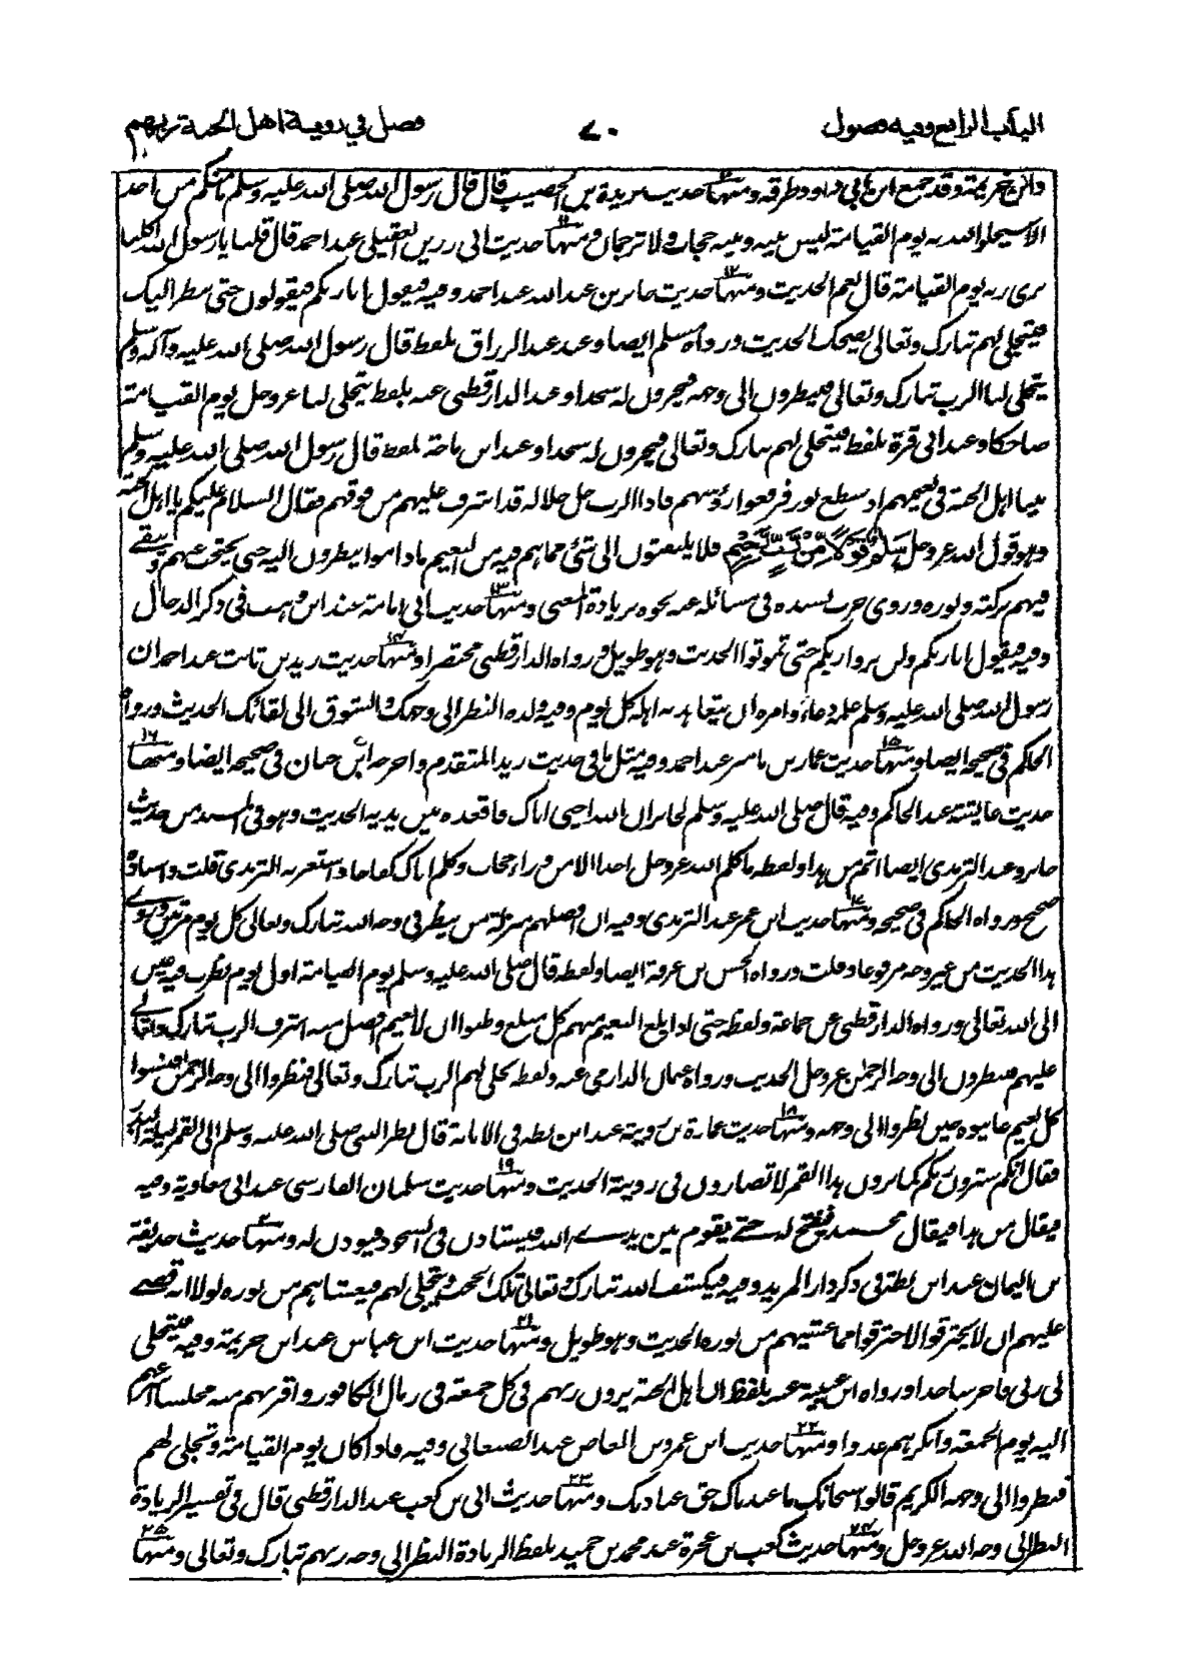 الباب الرابع وفيه فصول ٧٠ فصل في روية اهل الجنة ربهم
وابن خزيمة وقد جمع ابن ابي داود طرقه ومنها حديث بريدة بن الحصيب قال قال رسول الله صلى الله عليه وسلم ما منكم من احد
الا سيخلو الله به يوم القيامة ليس بينه وبينه حجاب ولا ترجمان ومنها ١١ حديث ابي رزين العقيلي عند احمد قال قلنا يا رسول الله اكلنا
يرى ربه يوم القيامة قال نعم الحديث ومنها ١٢ حديث جابر بن عبد الله عند احمد وفيه فيقول انا ربكم فيقولون حتى ننظر اليك
فيتجلى لهم تبارك وتعالى يضحك الحديث ورواه مسلم ايضا وعند عبد الرزاق بلفظ قال رسول الله صلى الله عليه وآله وسلم
يتجلى لنا الرب تبارك وتعالى فينظرون الى وجهه فيخرون له سجدا وعند الدارقطني عنه بلفظ يتجلى لنا عز وجل يوم القيامة
ضاحكا وعند ابي قرة بلفظ فيتجلى لهم تبارك وتعالى فيخرون له سجدا وعند ابن ماجة بلفظ قال رسول الله صلى الله عليه وسلم
بينا اهل الجنة في نعيمهم اذ سطع نور فرفعوا رؤسهم فاذا الرب جل جلاله قد اشرف عليهم من فوقهم فقال السلام عليكم يا اهل الجنة
وهو قول الله عز وجل سَلَٰمٌ قَوْلًا مِّن رَّبٍّ رَّحِيمٍ فلا يلتفتون الى شئ مما هم فيه من النعيم ما داموا ينظرون اليه حتى يحتجب عنهم ويبقے
فيهم بركته ونوره وروى حرب بسنده في مسائله عنه نحوه بزيادة المعنى ومنها ١٣ حديث ابي امامة عند ابن وهب في ذكر الدجال
وفيه فيقول انا ربكم ولن تروا ربكم حتى تموتوا الحديث وهو طويل ورواه الدارقطني مختصرا ومنها ١٤ حديث زيد بن ثابت عند احمد ان
رسول الله صلى الله عليه وسلم علمه دعاء وامره ان يتعاهد به اهله كل يوم وفيه ولذة النظر الى وجهك والشوق الى لقائك الحديث ورواه
الحاكم في صحيحه ايضا ومنها ١٥ حديث عمار بن ياسر عند احمد وفيه مثل ما في حديث زيد المتقدم واخرجه ابن حبان في صحيحه ايضا ومنها ١٦
حديث عائشة عند الحاكم وفيه قال صلى الله عليه وسلم لجابر ان الله احيى اباك فاقعده بين يديه الحديث وهو في المسند من حديث
جابر وعند الترمذي ايضا اتم من هذا ولفظه ما كلم الله عز وجل احدا الا من وراء حجاب وكلم اباك كفاحا واستغربه الترمذي قلت واسناده
صحيح ورواه الحاكم في صحيحه ومنها ١٧ حديث ابن عمر عند الترمذي وفيه ان افضلهم منزلة من ينظر في وجه الله تبارك وتعالى كل يوم مرتين وروے
هذا الحديث من غير وجه مرفوعا وقلت ورواه الحسن بن عرفة ايضا ولفظه قال صلى الله عليه وسلم يوم القيامة اول يوم نظرت فيه عين
الى الله تعالى ورواه الدارقطني عن جماعة ولفظه حتى اذا بلغ النعيم منهم كل مبلغ وظنوا ان لا نعيم افضل منه اشرف الرب تبارك وتعالے
عليهم فينظرون الى وجه الرحمن عز وجل الحديث ورواه عثمان الدارمي عنه ولفظه تجلى لهم الرب تبارك وتعالى فنظروا الى وجه الرحمن فنسوا
كل نعيم عاينوه حين نظروا الى وجهه ومنها ١٨ حديث عمارة بن رويبة عند ابن بطة في الابانة قال نظر النبي صلى الله عليه وسلم الى القمر ليلة البدر
فقال انكم سترون ربكم كما ترون هذا القمر لا تضارون في رويته الحديث ومنها ١٩ حديث سلمان الفارسي عند ابي معاوية وفيه
فيقال من هذا فيقال محمد فيفتح له حتے يقوم بين يدے الله فيستاذن في السجود فيوذن له ومنها ٢٠ حديث حذيفة
بن اليمان عند ابن بطة في ذكر دار المزيد وفيه فيكشف الله تبارك وتعالى تلك الحجب ويتجلى لهم فيغشاهم من نوره لولا انه قضے
عليهم ان لا يحترقوا لاحترقوا مما غشيهم من نوره الحديث وهو طويل ومنها ٢١ حديث ابن عباس عند ابن خزيمة وفيه فيتجلى
لي ربي فاخر ساجدا ورواه ابن عيينة عنه بلفظ ان اهل الجنة يرون ربهم في كل جمعة في رمال الكافور واقربهم منه مجلسا اسرعهم
اليه يوم الجمعة وابكرهم غدوا ومنها ٢٢ حديث ابن عمرو بن العاص عند الصنعاني وفيه فاذا كان يوم القيامة وتجلى لهم
فنظروا الى وجهه الكريم قالوا سبحانك ما عبدناك حق عبادتك ومنها ٢٣ حديث ابي بن كعب عند الدارقطني قال في تفسير الزيادة
النظر الى وجه الله عز وجل ومنها ٢٤ حديث كعب بن عجرة عند محمد بن حميد بلفظ الزيادة النظر الى وجه ربهم تبارك وتعالى ومنها ٢٥